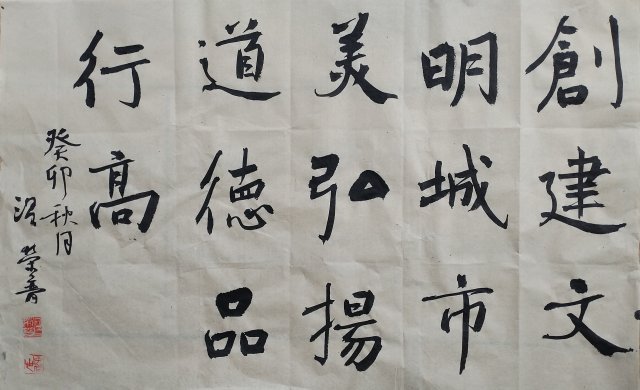 創建文
明城市
美弘揚
道德品
行高
癸卯秋月
榮晉